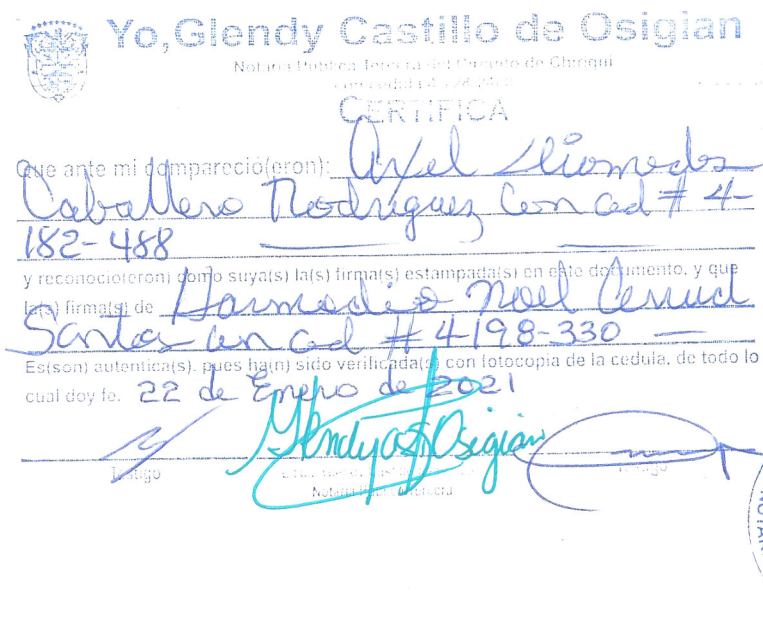 Yo, Glendy Castillo de Osigian
Notaria Pública Tercera del Circuito de Chiriquí
CERTIFICA
Que ante mi compareció(eron): Axel Diomedes
Caballero Rodriguez Con Ced # 4-
182-488
y reconoció(eron) como suya(s) la(s) firma(s) estampada(s) en este documento, y que
la(s) firma(s) de Harmodio Noel Cerrud
Santos con ced # 4198-330
Es(son) autentica(s). pues ha(n) sido verificada(s) con fotocopia de la cedula, de todo lo
cual doy fe. 22 de Enero de 2021
Glendy de Osigian
Testigo Testigo
Notaria Pública Tercera
NOTAR